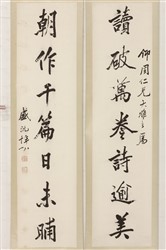 讀破萬卷詩逾美
仰周仁兄大雅之屬
朝作千篇日未晡
盛沅